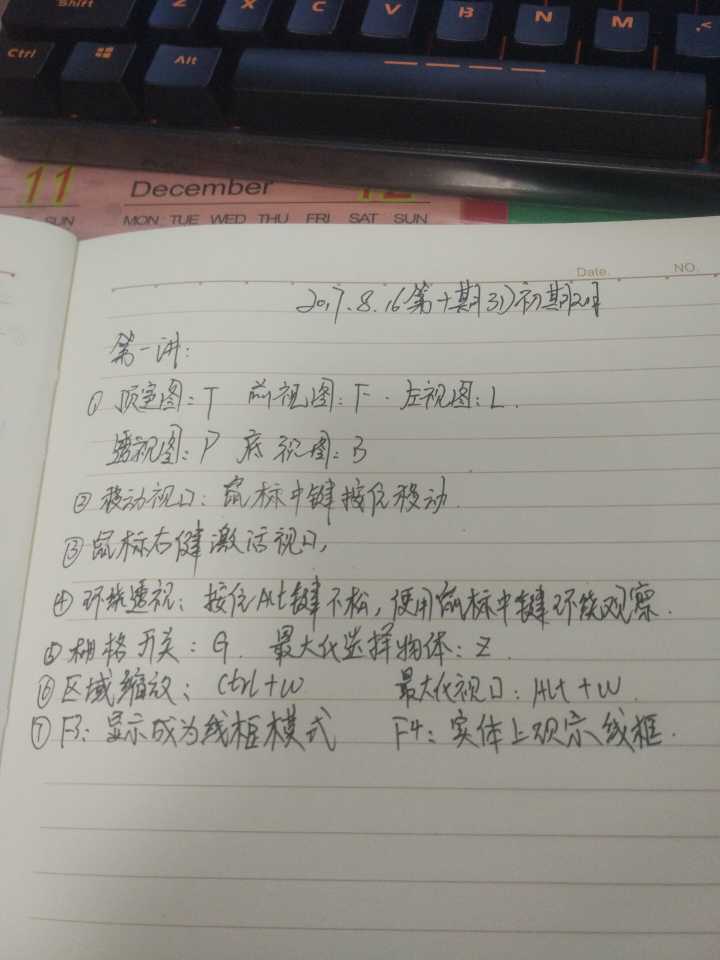 Shift Z X C V B N M ,<
Ctrl Alt
11 December 12
SUN MON TUE WED THU FRI SAT SUN
Date. NO.
2017.8.16(第十期31)初期
第一讲:
① 顶视图:T 前视图:F. 左视图:L.
透视图:P 底视图:B
② 移动视口:鼠标中键按住移动.
③ 鼠标右键激活视口,
④ 环绕透视:按住Alt键不松,使用鼠标中键环绕观察.
⑤ 栅格开关:G. 最大化选择物体:Z.
⑥ 区域缩放:Ctrl+W 最大化视口:Alt+W.
⑦ F3:显示成为线框模式 F4:实体上显示线框.